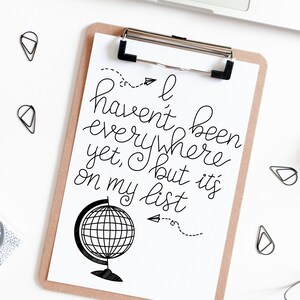 I
haven't been
everywhere
yet, but it's
on my list